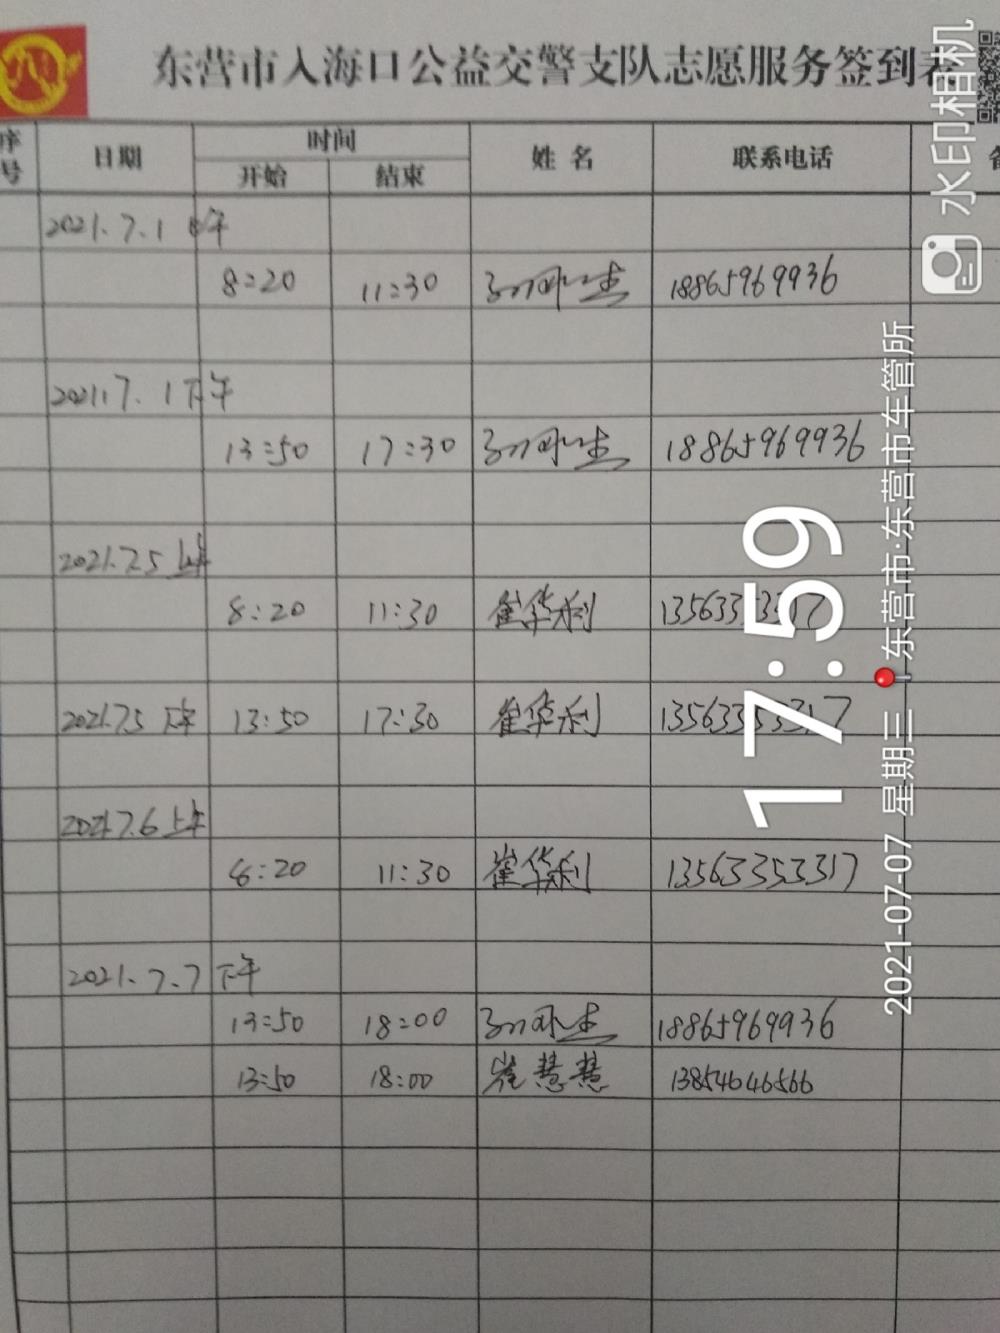 东营市入海口公益交警支队志愿服务签到表
序号 日期 时间 姓 名 联系电话 备
开始 结束
2021.7.1 上午
8:20 11:30 18865969936
2021.7.1 下午
13:50 17:30 18865969936
2021.7.5 上午
8:20 11:30 崔华利 13563353317
2021.7.5 下午 13:50 17:30 崔华利 13563353317
2021.7.6 上午
8:20 11:30 崔华利 13563353317
2021.7.7 下午
13:50 18:00 18865969936
13:50 18:00 崔慧慧 13854646566
水印相机
17:59
2021-07-07 星期三 东营市·东营市车管所